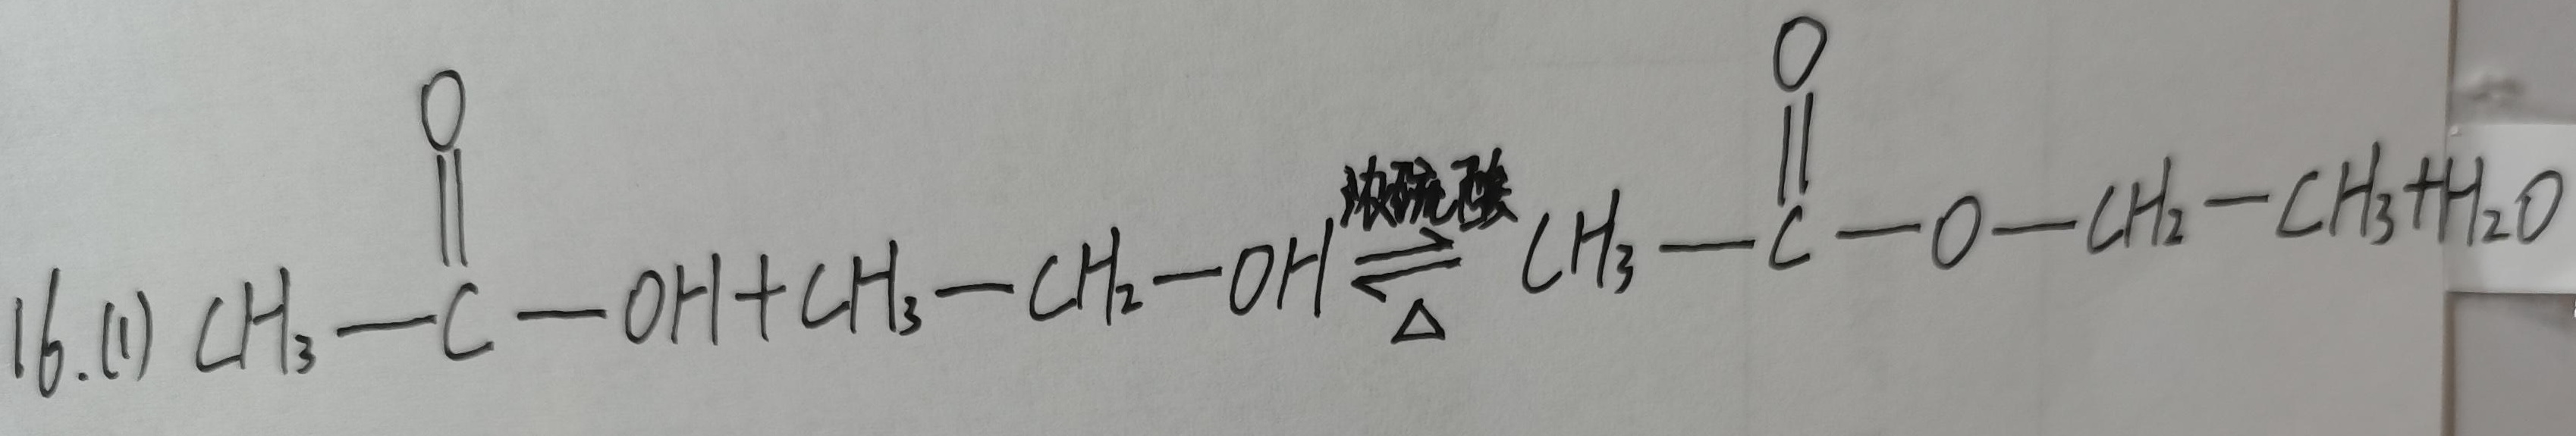 16.(1) CH₃—C(=O)—OH+CH₃—CH₂—OH ⇌(浓硫酸/△) CH₃—C(=O)—O—CH₂—CH₃+H₂O